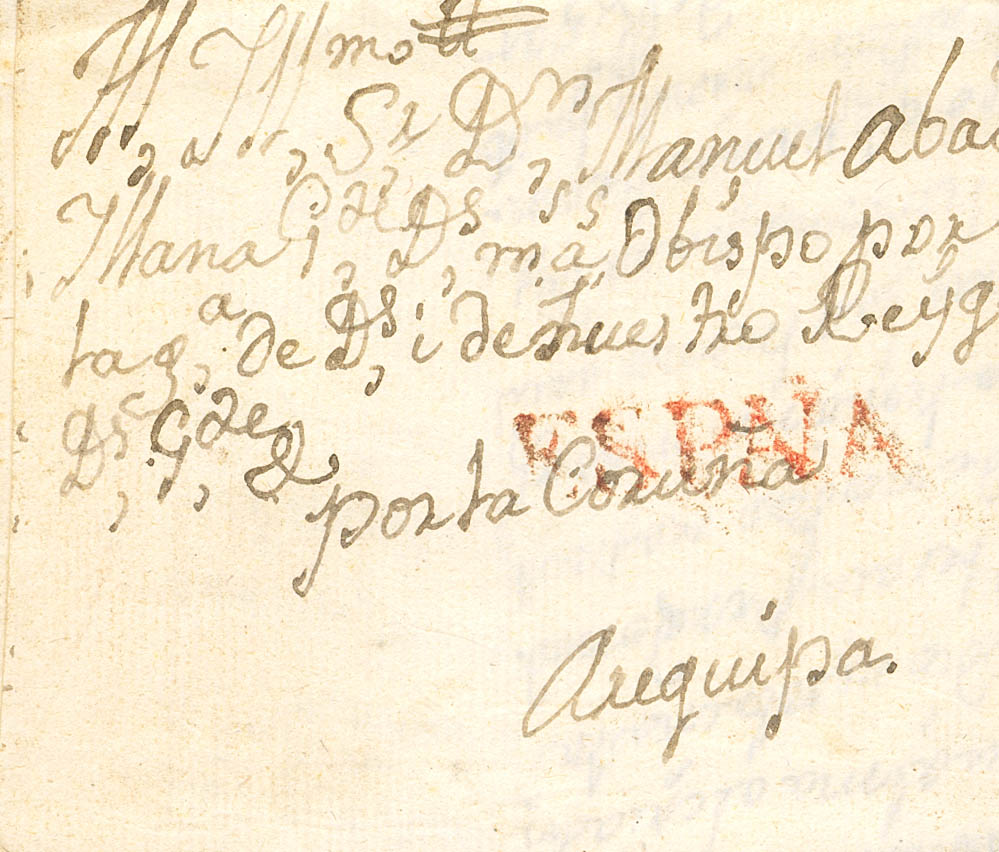 Al Illmo
Sr, Dn, Manuel Abad
Illana Gde, Ds, ms, as, Obispo por
la ga, de Ds, i de nuestro Rey q
Ds, gde, &
ESPÑA
por la Coruña
Arequipa.